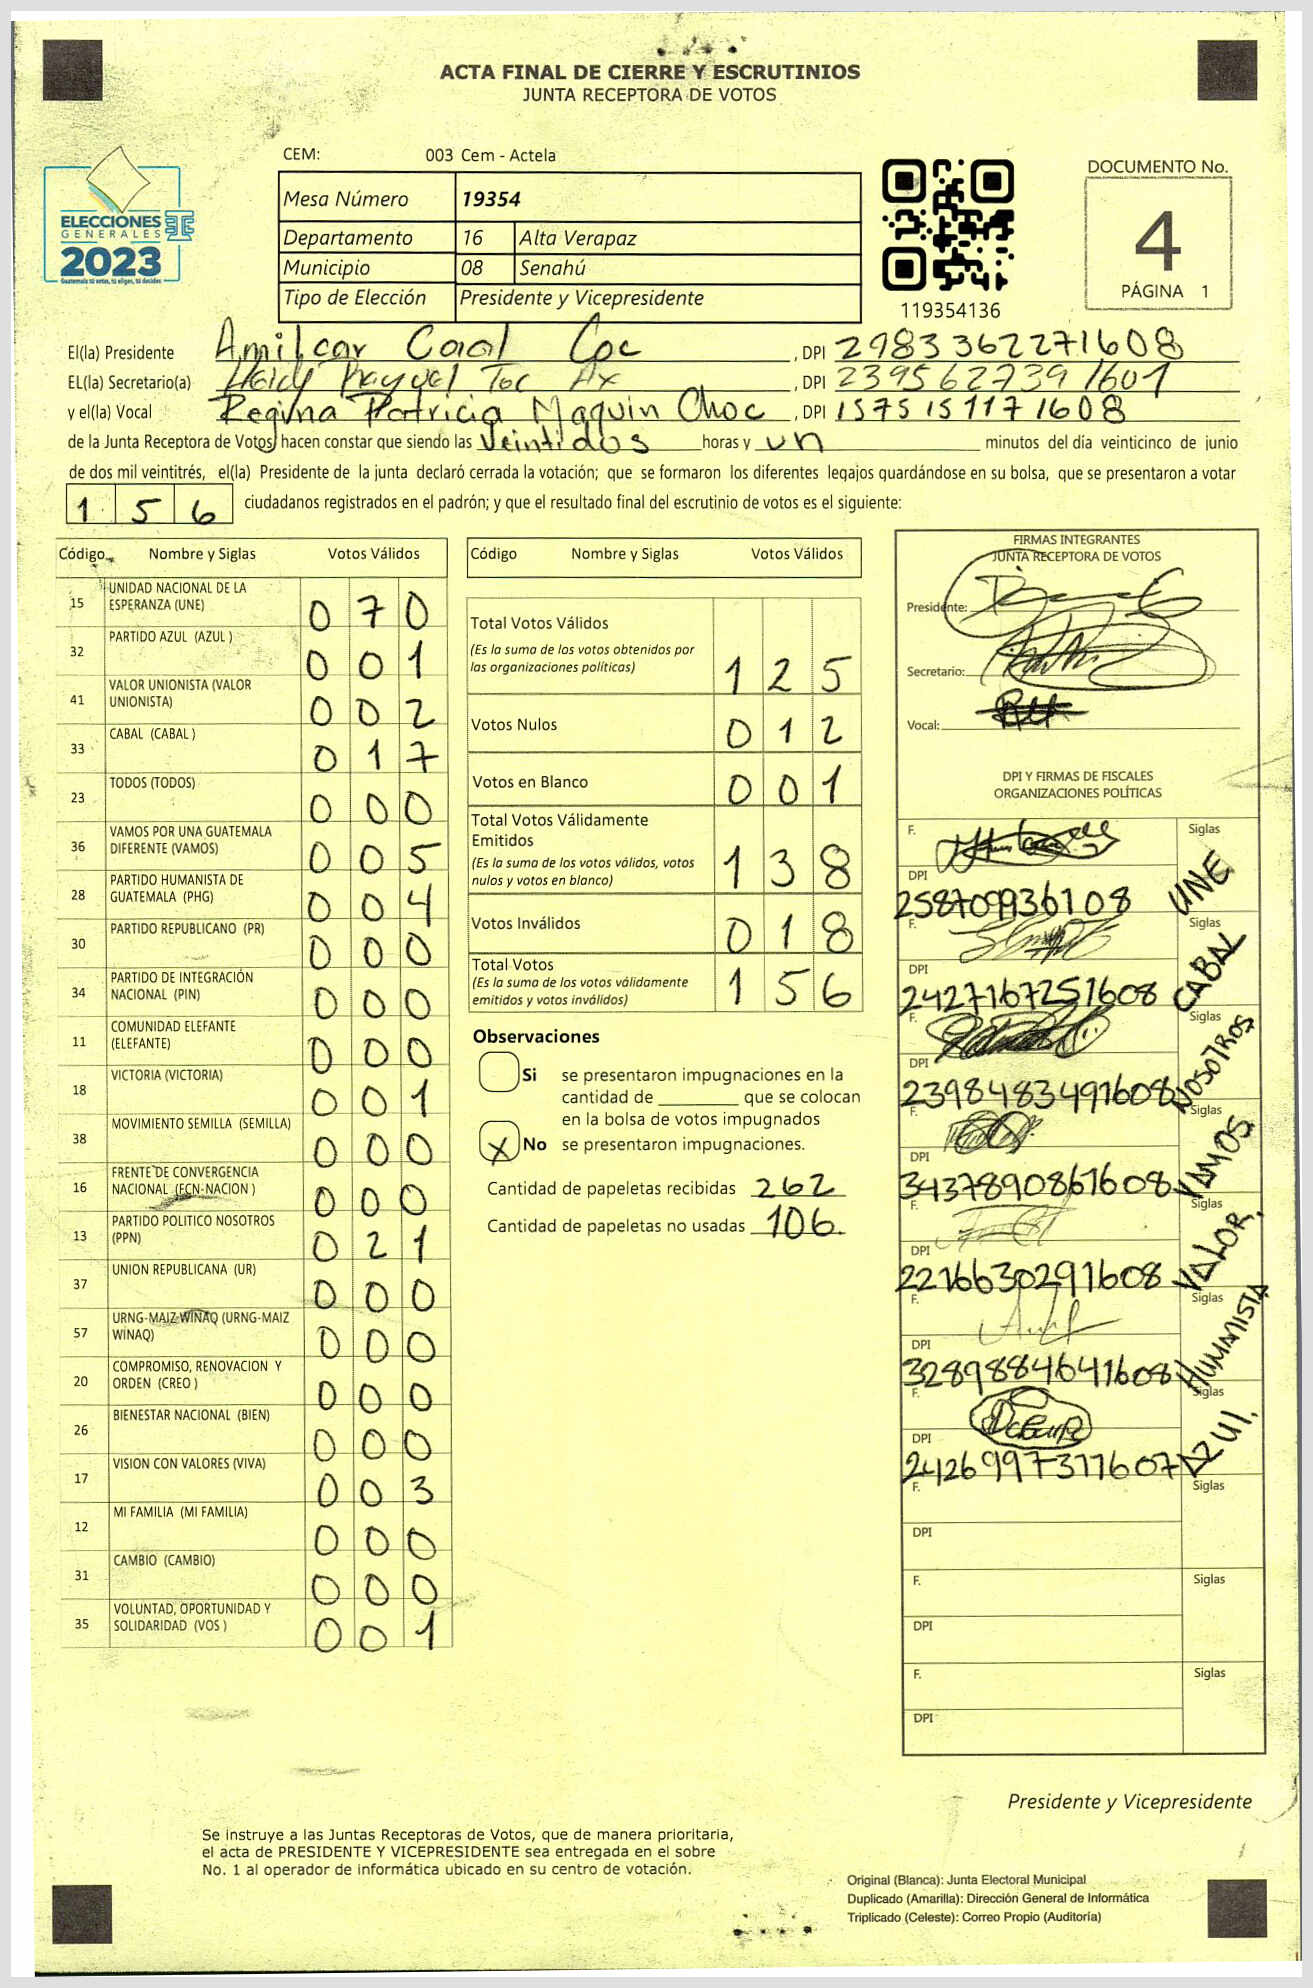 ACTA FINAL DE CIERRE Y ESCRUTINIOS
JUNTA RECEPTORA DE VOTOS
ELECCIONES
GENERALES
2023
Guatemala tú votas, tú eliges, tú decides
CEM: 003 Cem - Actela
Mesa Número 19354
Departamento 16 Alta Verapaz
Municipio 08 Senahú
Tipo de Elección Presidente y Vicepresidente
119354136
DOCUMENTO No.
4
PÁGINA 1
El(la) Presidente Amilcar Caal Coc , DPI 2983362271608
EL(la) Secretario(a) Heidy Toc Ax , DPI 2395627391601
y el(la) Vocal Regina Patricia Maquin Choc , DPI 1575151171608
de la Junta Receptora de Votos, hacen constar que siendo las Veintidos horas y un minutos del día veinticinco de junio
de dos mil veintitrés, el(la) Presidente de la junta declaró cerrada la votación; que se formaron los diferentes legajos quardándose en su bolsa, que se presentaron a votar
1 5 6 ciudadanos registrados en el padrón; y que el resultado final del escrutinio de votos es el siguiente:
Código Nombre y Siglas Votos Válidos
15 UNIDAD NACIONAL DE LA ESPERANZA (UNE) 0 7 0
32 PARTIDO AZUL (AZUL ) 0 0 1
41 VALOR UNIONISTA (VALOR UNIONISTA) 0 0 2
33 CABAL (CABAL ) 0 1 7
23 TODOS (TODOS) 0 0 0
36 VAMOS POR UNA GUATEMALA DIFERENTE (VAMOS) 0 0 5
28 PARTIDO HUMANISTA DE GUATEMALA (PHG) 0 0 4
30 PARTIDO REPUBLICANO (PR) 0 0 0
34 PARTIDO DE INTEGRACIÓN NACIONAL (PIN) 0 0 0
11 COMUNIDAD ELEFANTE (ELEFANTE) 0 0 0
18 VICTORIA (VICTORIA) 0 0 1
38 MOVIMIENTO SEMILLA (SEMILLA) 0 0 0
16 FRENTE DE CONVERGENCIA NACIONAL (FCN-NACION ) 0 0 0
13 PARTIDO POLITICO NOSOTROS (PPN) 0 2 1
37 UNION REPUBLICANA (UR) 0 0 0
57 URNG-MAIZ-WINAQ (URNG-MAIZ WINAQ) 0 0 0
20 COMPROMISO, RENOVACION Y ORDEN (CREO ) 0 0 0
26 BIENESTAR NACIONAL (BIEN) 0 0 0
17 VISION CON VALORES (VIVA) 0 0 3
12 MI FAMILIA (MI FAMILIA) 0 0 0
31 CAMBIO (CAMBIO) 0 0 0
35 VOLUNTAD, OPORTUNIDAD Y SOLIDARIDAD (VOS ) 0 0 1
Código Nombre y Siglas Votos Válidos
Total Votos Válidos
(Es la suma de los votos obtenidos por
las organizaciones políticas) 1 2 5
Votos Nulos 0 1 2
Votos en Blanco 0 0 1
Total Votos Válidamente
Emitidos
(Es la suma de los votos válidos, votos
nulos y votos en blanco) 1 3 8
Votos Inválidos 0 1 8
Total Votos
(Es la suma de los votos válidamente
emitidos y votos inválidos) 1 5 6
Observaciones
Si se presentaron impugnaciones en la
cantidad de ________ que se colocan
en la bolsa de votos impugnados
X No se presentaron impugnaciones.
Cantidad de papeletas recibidas 262
Cantidad de papeletas no usadas 106
FIRMAS INTEGRANTES
JUNTA RECEPTORA DE VOTOS
Presidente:
Secretario:
Vocal:
DPI Y FIRMAS DE FISCALES
ORGANIZACIONES POLÍTICAS
F. Siglas
DPI 2587099361108 UNE
F. Siglas
DPI 2427167251608 CABAL
F. Siglas
DPI 2398483491608 NOSOTROS
F. Siglas
DPI 3437890861608 VAMOS
F. Siglas
DPI 2216630291608 VALOR.
F. Siglas
DPI 3289884641608 HUMANISTA
F. Siglas
DPI 2426997311607 AZUL.
F. Siglas
DPI
F. Siglas
DPI
F. Siglas
DPI
Presidente y Vicepresidente
Se instruye a las Juntas Receptoras de Votos, que de manera prioritaria,
el acta de PRESIDENTE Y VICEPRESIDENTE sea entregada en el sobre
No. 1 al operador de informática ubicado en su centro de votación.
Original (Blanca): Junta Electoral Municipal
Duplicado (Amarilla): Dirección General de Informática
Triplicado (Celeste): Correo Propio (Auditoría)